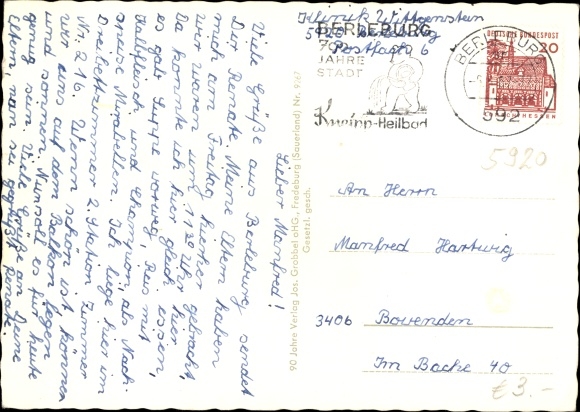 Lieber Manfred!
Viele Grüße aus Berleburg sendet
Dir Renate. Meine Eltern haben
mich am Freitag hierher gebracht
wir waren um 11³⁰ Uhr hier
Da konnte ich hier gleich essen,
es gab Suppe vorweg, Reis mit
Fleisch und Champion, als Nach-
speise Mirabellen. Ich liege hier im
Dreibettzimmer 2. Station Zimmer
Nr. 216. Wenn schön ist können
wir uns auf dem Balkon legen
und sonnen. Nun soll es für heute
genug sein. Viele Grüße an Deine
Eltern, sei gegrüßt Renate.
Klinik Wittgenstein
5920 Berleburg
Postfach 6
BERLEBURG
700
JAHRE
STADT
Kneipp-Heilbad
BERLEBURG
592
DEUTSCHE BUNDESPOST
20
HESSEN
5920
90 Jahre Verlag Jos. Grobbel oHG., Fredeburg (Sauerland) Nr. 9/67
Gesetzl. gesch.
An Herrn
Manfred Hartwig
3406 Bovenden
Im Backe 40
€ 3.-